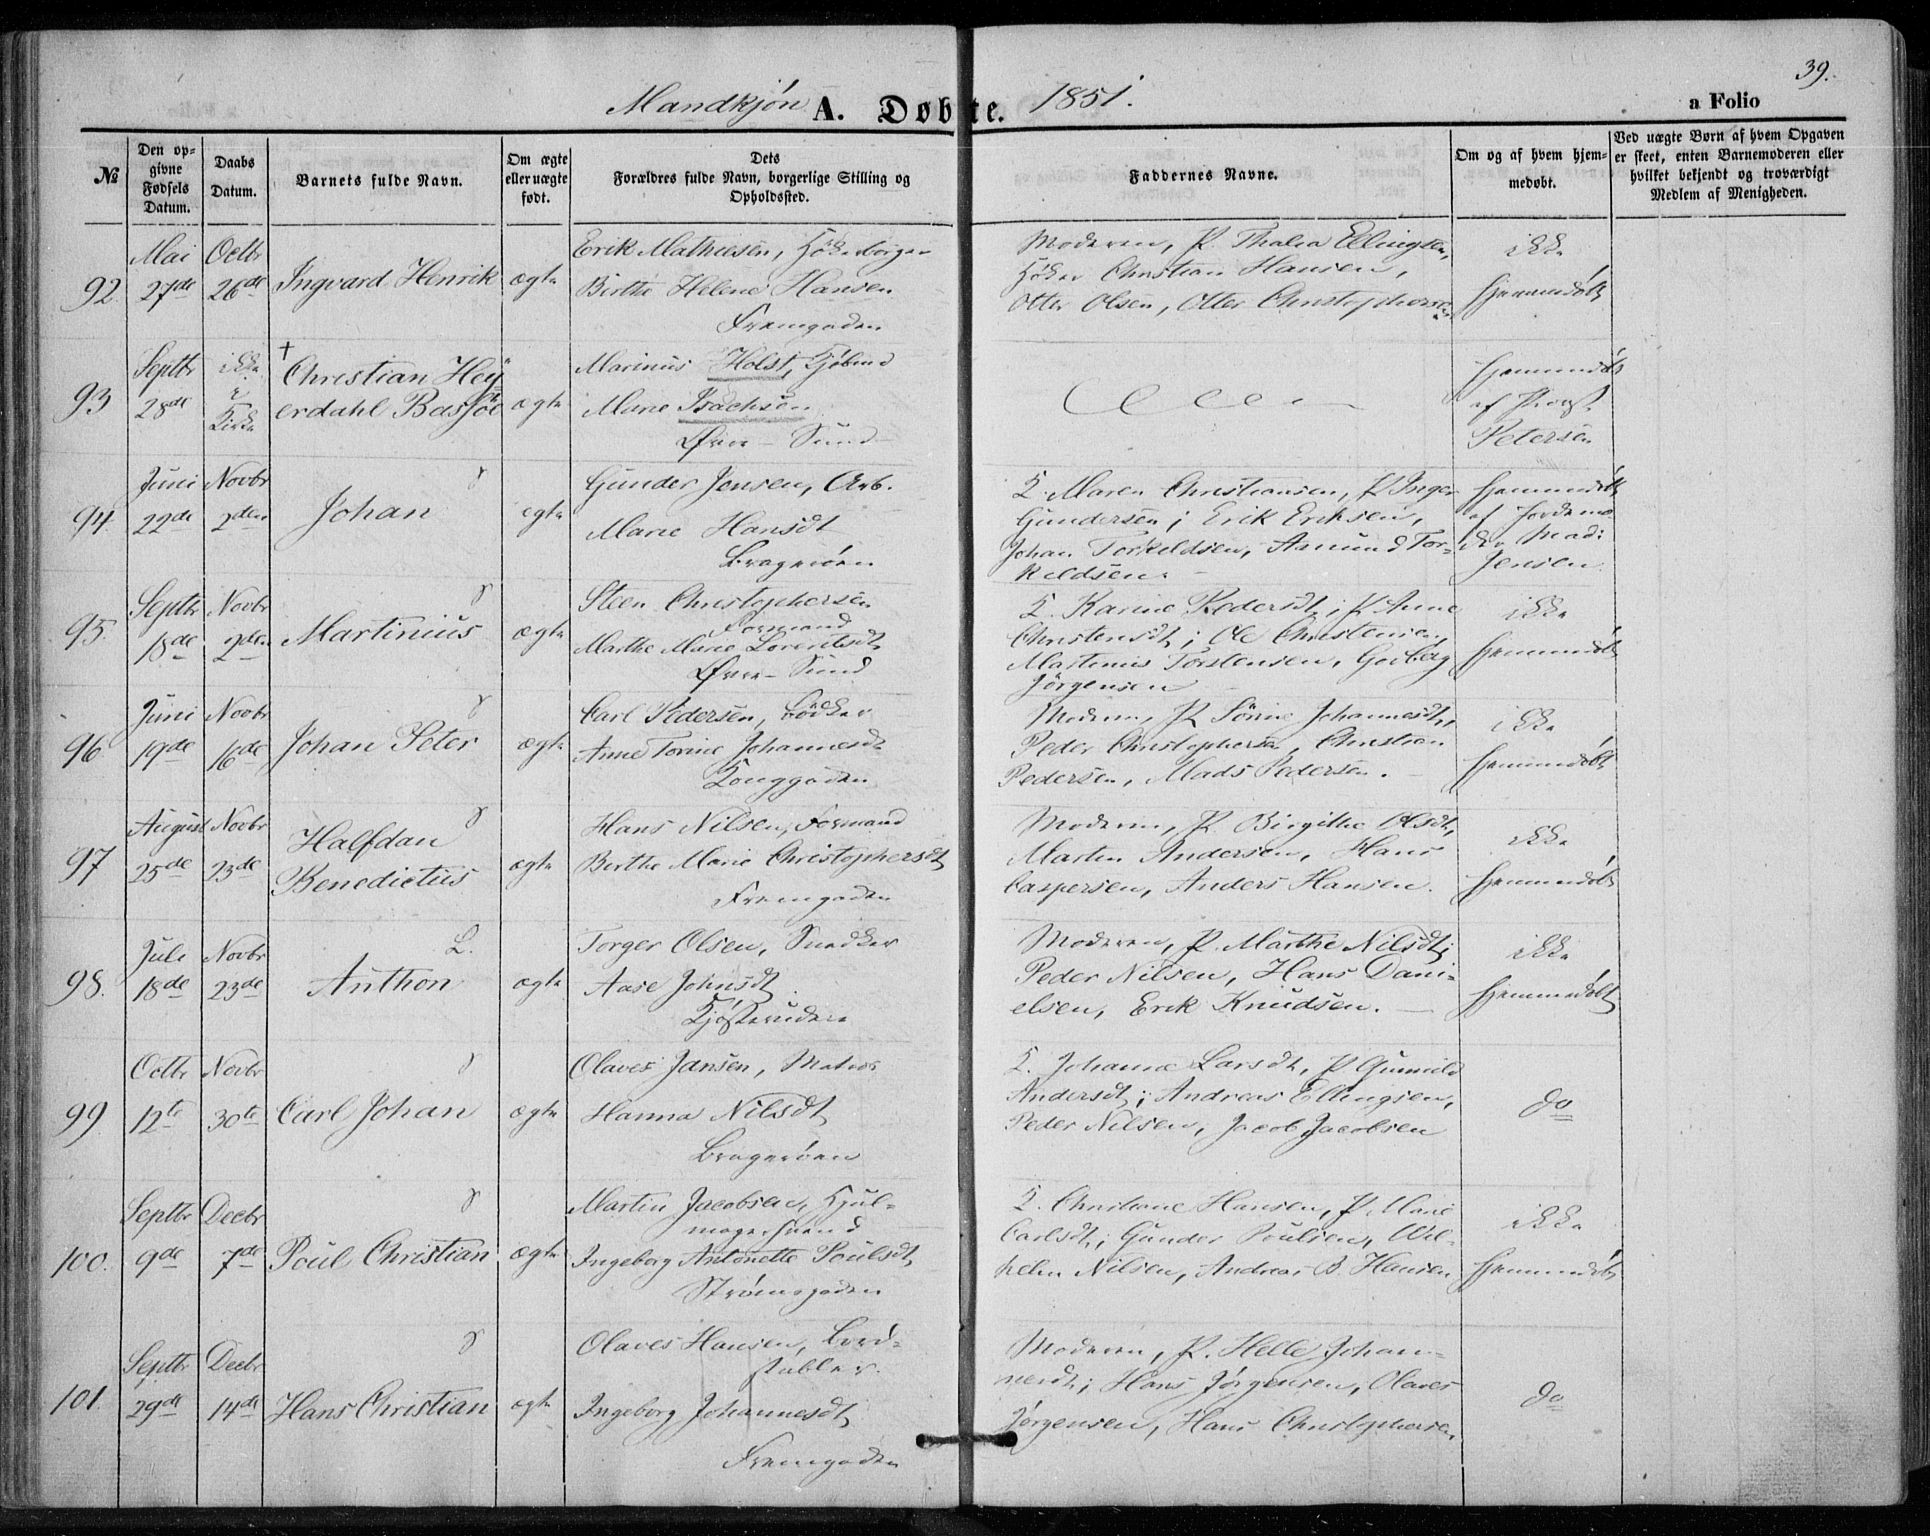 39.
Mandkjøn A. Døbte. 1851.
a Folio
№
Den op-
givne
Fødsels
Datum.
Daabs
Datum.
Barnets fulde Navn.
Om ægte
eller uægte
født.
Dets
Forældres fulde Navn, borgerlige Stilling og
Opholdssted.
Faddernes Navne.
Om og af hvem hjem-
medøbt.
Ved uægte Børn af hvem Opgaven
er skeet, enten Barnemoderen eller
hvilket bekjendt og troværdigt
Medlem af Menigheden.
92.
Mai
27de
Octbr
26de
Ingvard Henrik
ægte
Erik Mathiesen,
Birthe Helene Hansen
Fremgaden
Moderen, P. Thalia Ellingsen,
Høker Christian Hansen,
Otter Olsen, Otter Christophersen
ikke
hjemmedøbt
93
Septbr
28de
ikke
i
Kirke
†
Christian Hey-
erdahl Bassøe
ægte
Marinus Holst, Kjøbmd
Marie Isachsen
Øvre-Sund
Hjemmedøbt
af Provst
Petersen
94.
Juni
22de
Novbr
2den
Johan
ægte
Gunder Jensen, Arb.
Marie Hansdt
Bragerøen
Q. Maren Christiansen, P. Inger
Gundersen; Erik Eriksen,
Johan Torkeldsen, Amund Tor-
keldsen.
hjemmedøbt
af Jordemo-
der Mad:
Jensen
95.
Septbr
18de
Novbr
2den
Martinius
ægte
Steen Christophersen
Formand
Marthe Marie Lorentsdt
Øvre-Sund
Q. Karine Pedersdt; P. Anne
Christensdt; Ole Christensen,
Martinius Torstensen, Godberg
Jørgensen
ikke
hjemmedøbt
96.
Juni
19de
Novbr
16de
Johan Peter
ægte
Carl Pedersen, Bødker
Anne Torine Johannesdt
Konggaden
Moderen, P. Sørine Johannesdt,
Peder Christophersen, Christian
Pedersen, Mads Pedersen.
ikke
hjemmedøbt
97
August
25de
Novbr
23de
Halfdan
Benedictus
ægte
Hans Nilsen, Formand
Berthe Marie Christophersdt
Fremgaden
Moderen, P. Birgithe Olsdt,
Martin Andersen, Hans
Caspersen, Anders Hansen.
ikke
hjemmedøbt
98.
Juli
18de
Novbr
23de
L.
Anthon
ægte
Torger Olsen, Snedker
Aase Johnsdt
Kjøsterudene
Moderen, P. Marthe Nilsdt;
Peder Nilsen, Hans Dani-
elsen, Erik Knudsen.
ikke
hjemmedøbt
99
Octbr
12te
Novbr
30te
Carl Johan
ægte
Olaves Jansen, Matros
Hanna Nilsdt
Bragerøen
Q. Johanne Larsdt, P. Gunnild
Andersdt; Andreas Ellingsen,
Peder Nilsen, Jacob Jacobsen
do
100.
Septbr
9de
Decbr
7de
Poul Christian
ægte
Martin Jacobsen, Hjul-
magersvend
Ingeborg Antonette Poulsdt
Strømsgaden
Q. Christiane Hansen, P. Marie
Carlsdt; Gunder Poulsen, Wil-
helm Nilsen, Andreas B. Hansen
ikke
hjemmedøbt
101.
Septbr
29de
Decbr
14de
Hans Christian
ægte
Olaves Hansen, Bord-
stabler.
Ingeborg Johannesdt
Fremgaden
Moderen, P. Helle Johan-
nesdt; Hans Jørgensen, Olaves
Jørgensen, Hans Christophersen
do